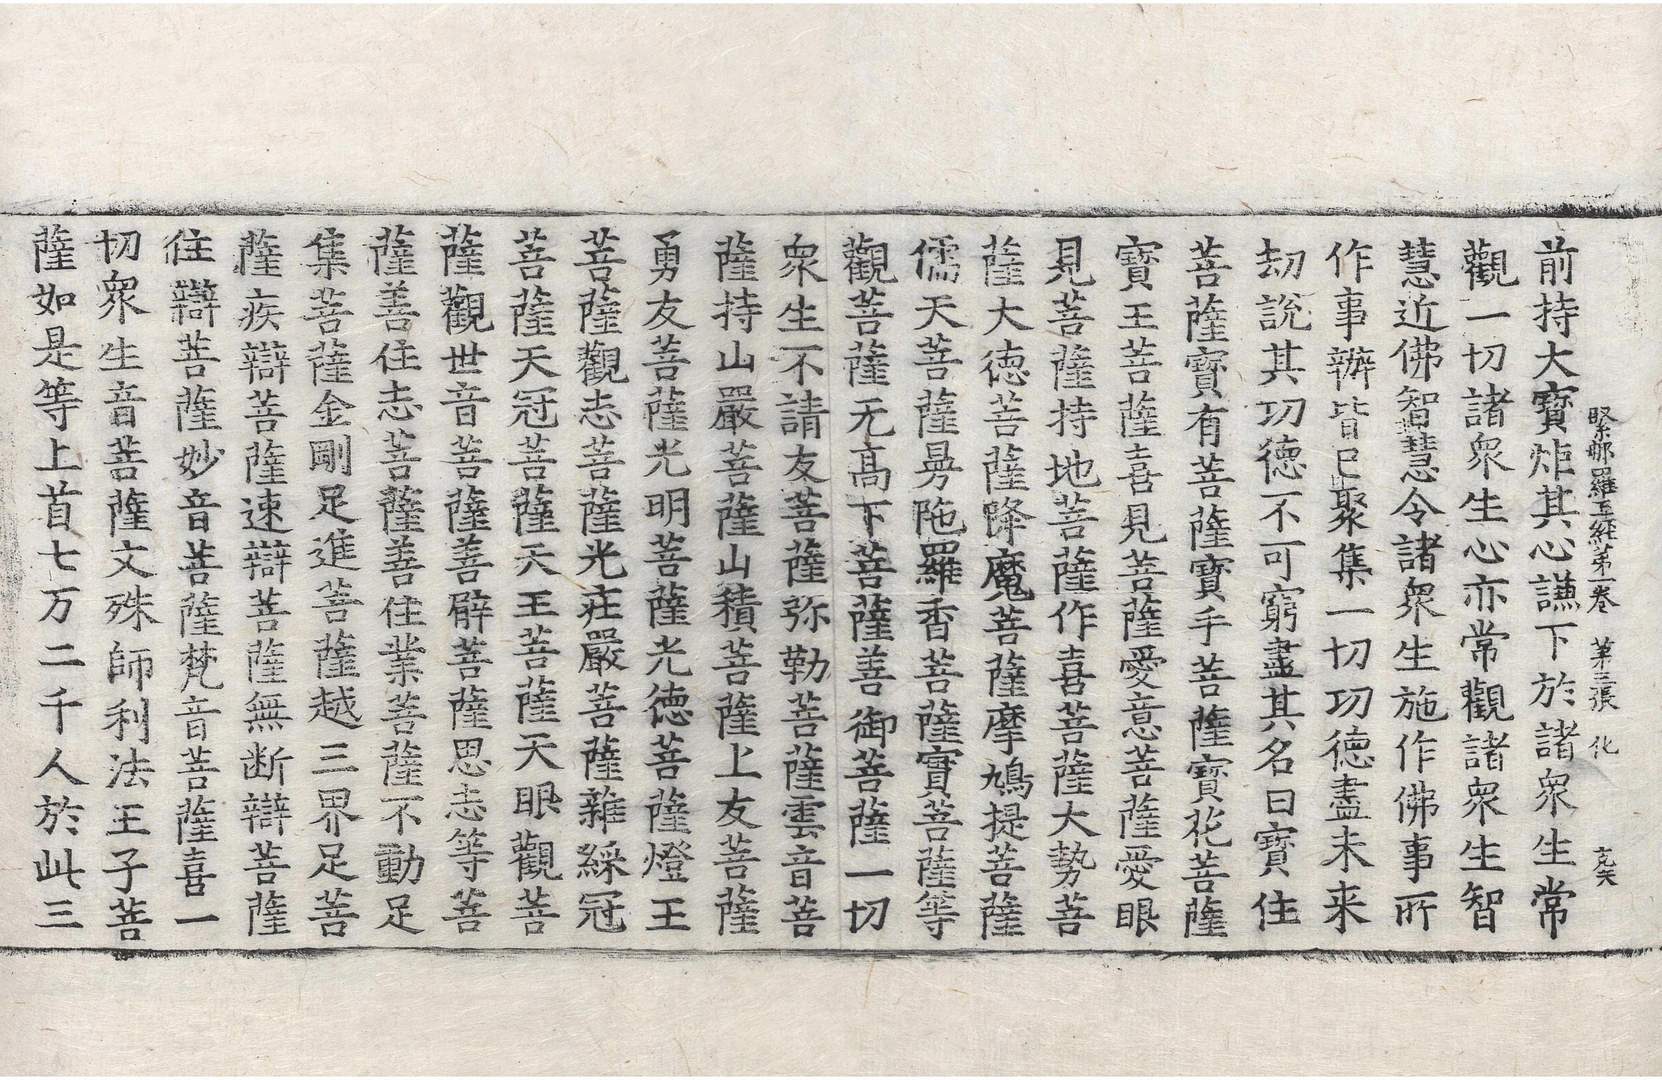 緊那羅王經第一卷　第三張　化
前持大寶炬其心謙下於諸衆生常
觀一切諸衆生心亦常觀諸衆生智
慧近佛智慧令諸衆生施作佛事所
作事辦皆已聚集一切功德盡未来
劫說其功德不可窮盡其名曰寶住
菩薩寶有菩薩寶手菩薩寶花菩薩
寶王菩薩喜見菩薩愛意菩薩愛眼
見菩薩持地菩薩作喜菩薩大勢菩
薩大德菩薩降魔菩薩摩鳩提菩薩
儒天菩薩曼陁羅香菩薩寶菩薩等
觀菩薩无高下菩薩善御菩薩一切
衆生不請友菩薩弥勒菩薩雲音菩
薩持山嚴菩薩山積菩薩上友菩薩
勇友菩薩光明菩薩光德菩薩燈王
菩薩觀志菩薩光莊嚴菩薩雜綵冠
菩薩天冠菩薩天王菩薩天眼觀菩
薩觀世音菩薩善辟菩薩思志等菩
薩善住志菩薩善住業菩薩不動足
集菩薩金剛足進菩薩越三界足菩
薩疾辯菩薩速辯菩薩無斷辯菩薩
住辯菩薩妙音菩薩梵音菩薩喜一
切衆生音菩薩文殊師利法王子菩
薩如是等上首七万二千人於此三